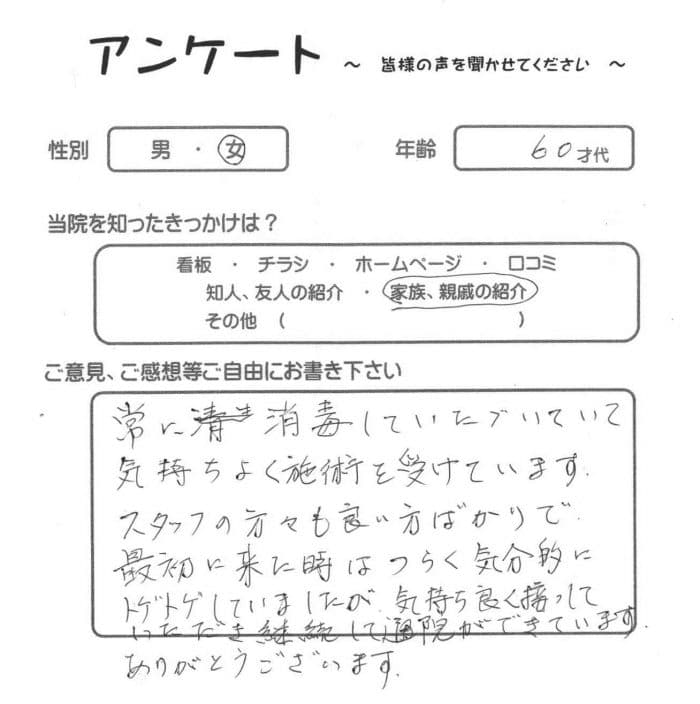 アンケート ～ 皆様の声を聞かせてください ～
性別 男 ・ 女 年齢 60才代
当院を知ったきっかけは？
看板 ・ チラシ ・ ホームページ ・ 口コミ
知人、友人の紹介 ・ 家族、親戚の紹介
その他 （ ）
ご意見、ご感想等ご自由にお書き下さい
常に 消毒していたづいていて
気持ちよく施術を受けています.
スタッフの方々も良い方ばかりで.
最初に来た時はつらく気分的に
トゲトゲしていましたが、気持ち良く接っして
いただき継続して通院ができています.
ありがとうございます.